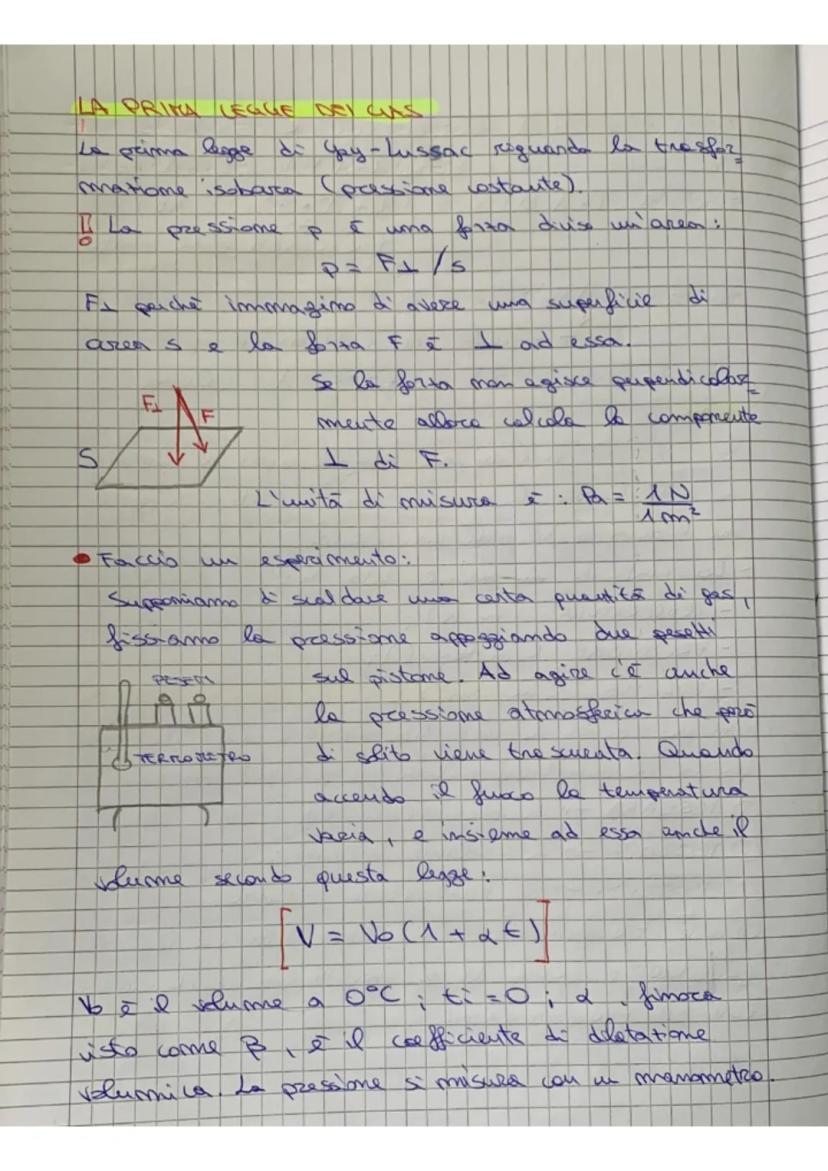 LA PRIMA LEGGE DEI GAS
La prima legge di Gay-Lussac riguarda la trasfor_
mazione isobara (pressione costante).
!! La pressione p è una forza diviso un'area:
p = F⊥ / S
F⊥ perché immagino di avere una superficie di
area S e la forza F è ⊥ ad essa.
Se la forza non agisce perpendicolar_
mente allora calcolo la componente
⊥ di F.
F⊥
F
S
L'unità di misura è : Pa = 1N
1m²
• Faccio un esperimento:
Supponiamo di scaldare una certa quantità di gas,
fissiamo la pressione appoggiando due pesetti
sul pistone. Ad agire c'è anche
la pressione atmosferica che però
di solito viene trascurata. Quando
accendo il fuoco la temperatura
varia, e insieme ad essa anche il
PESETTI
TERMOMETRO
volume secondo questa legge:
[V = V₀ (1 + αt)]
V₀ è il volume a 0°C ; ti = 0 ; α, finora
visto come β, è il coefficiente di dilatazione
volumica. La pressione si misura con un manometro.